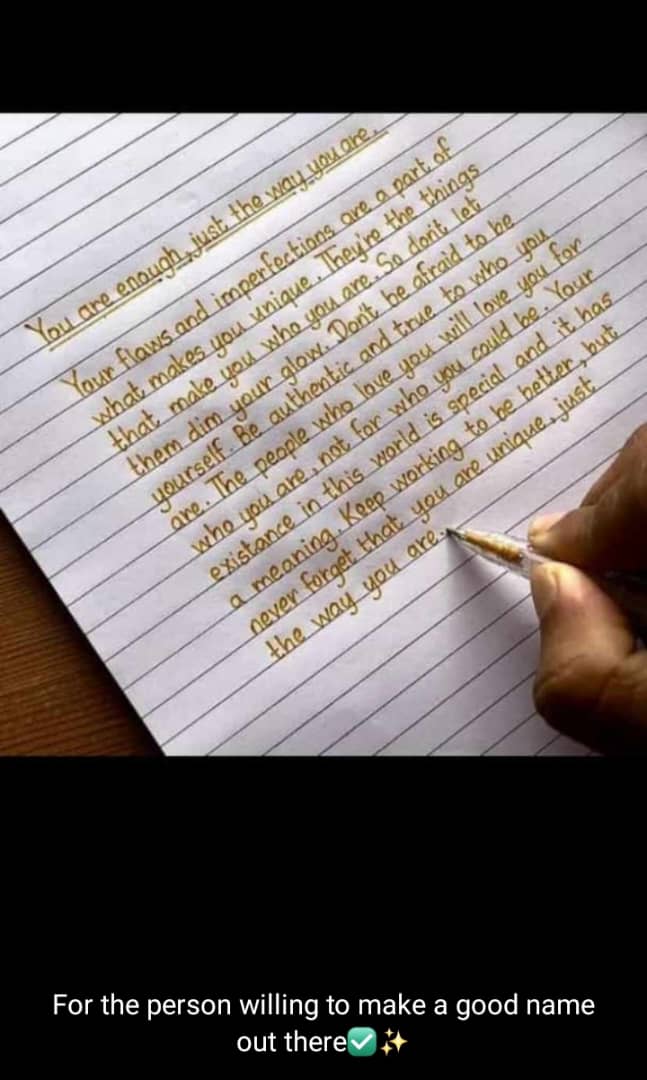 You are enough, just the way you are.
Your flaws and imperfections are a part of
what makes you unique. They're the things
that make you who you are. So don't let
them dim your glow. Don't be afraid to be
yourself. Be authentic and true to who you
are. The people who love you will love you for
who you are, not for who you could be. Your
existance in this world is special and it has
a meaning. Keep working to be better, but
never forget that you are unique, just
the way you are.
For the person willing to make a good name
out there✅✨